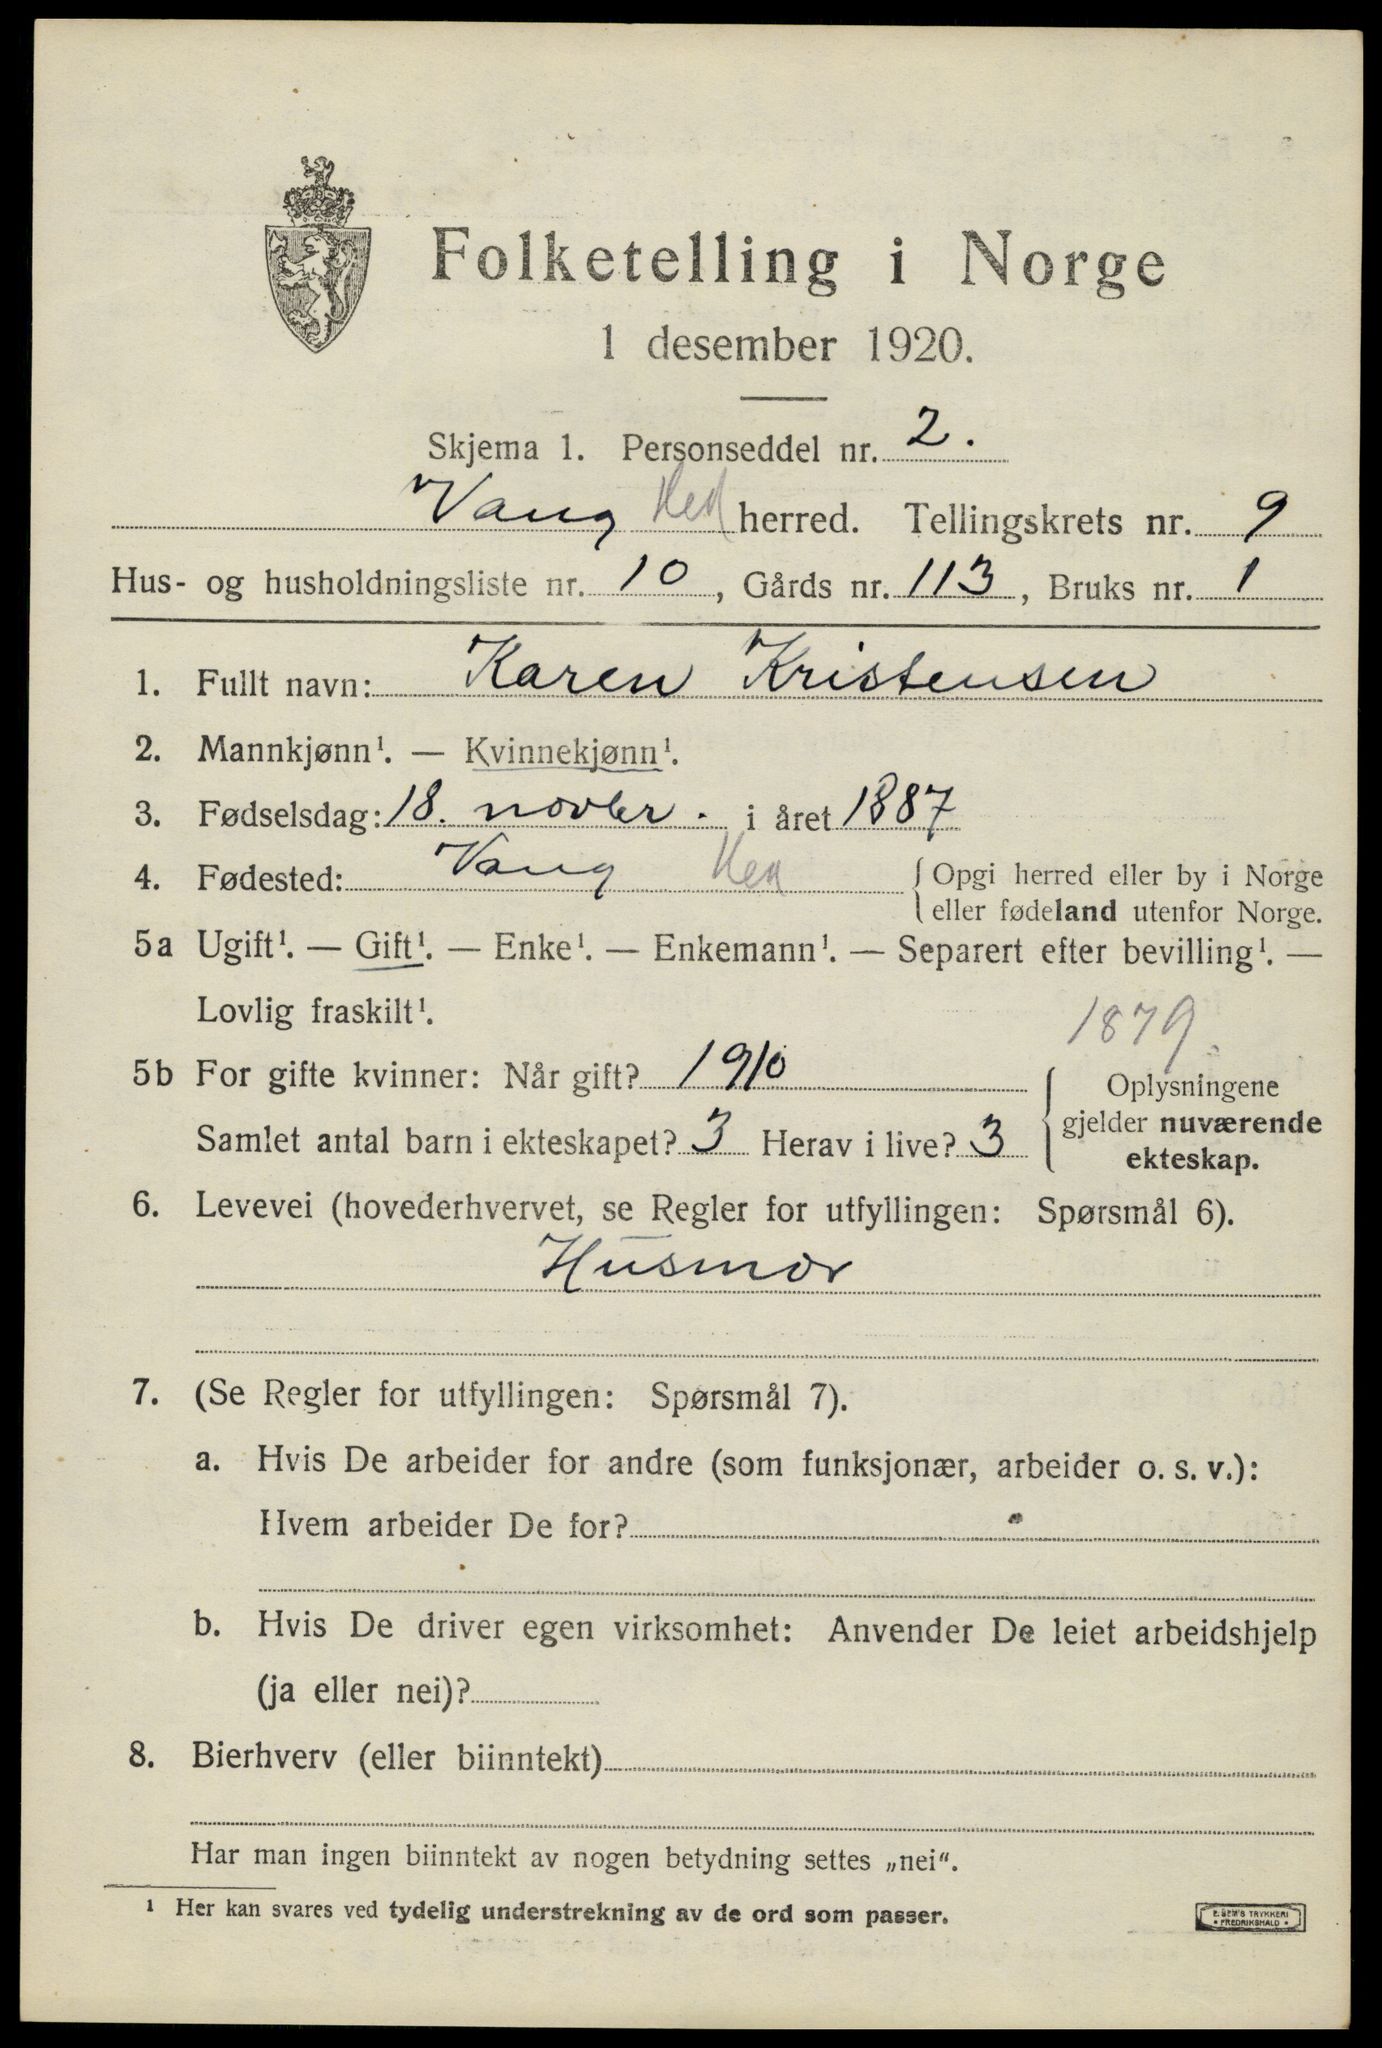 Folketelling i Norge
1 desember 1920.
Skjema 1. Personseddel nr. 2.
Vang Hed herred. Tellingskrets nr. 9
Hus- og husholdningsliste nr. 10, Gårds nr. 113, Bruks nr. 1
1. Fullt navn: Karen Kristensen
2. Mannkjønn¹. — Kvinnekjønn¹.
3. Fødselsdag: 18. novber. i året 1887
4. Fødested: Vang Hed { Opgi herred eller by i Norge
eller fødeland utenfor Norge.
5a Ugift¹. — Gift¹. — Enke¹. — Enkemann¹. — Separert efter bevilling¹. —
Lovlig fraskilt¹.
1879.
5b For gifte kvinner: Når gift? 1910
Samlet antal barn i ekteskapet? 3 Herav i live? 3
{ Oplysningene
gjelder nuværende
ekteskap.
6. Levevei (hovederhvervet, se Regler for utfyllingen: Spørsmål 6).
Husmor
7. (Se Regler for utfyllingen: Spørsmål 7).
a. Hvis De arbeider for andre (som funksjonær, arbeider o. s. v.):
Hvem arbeider De for?
b. Hvis De driver egen virksomhet: Anvender De leiet arbeidshjelp
(ja eller nei)?
8. Bierhverv (eller biinntekt)
Har man ingen biinntekt av nogen betydning settes „nei“.
¹ Her kan svares ved tydelig understrekning av de ord som passer.
E. SEM'S TRYKKERI
• FREDRIKSHALD •